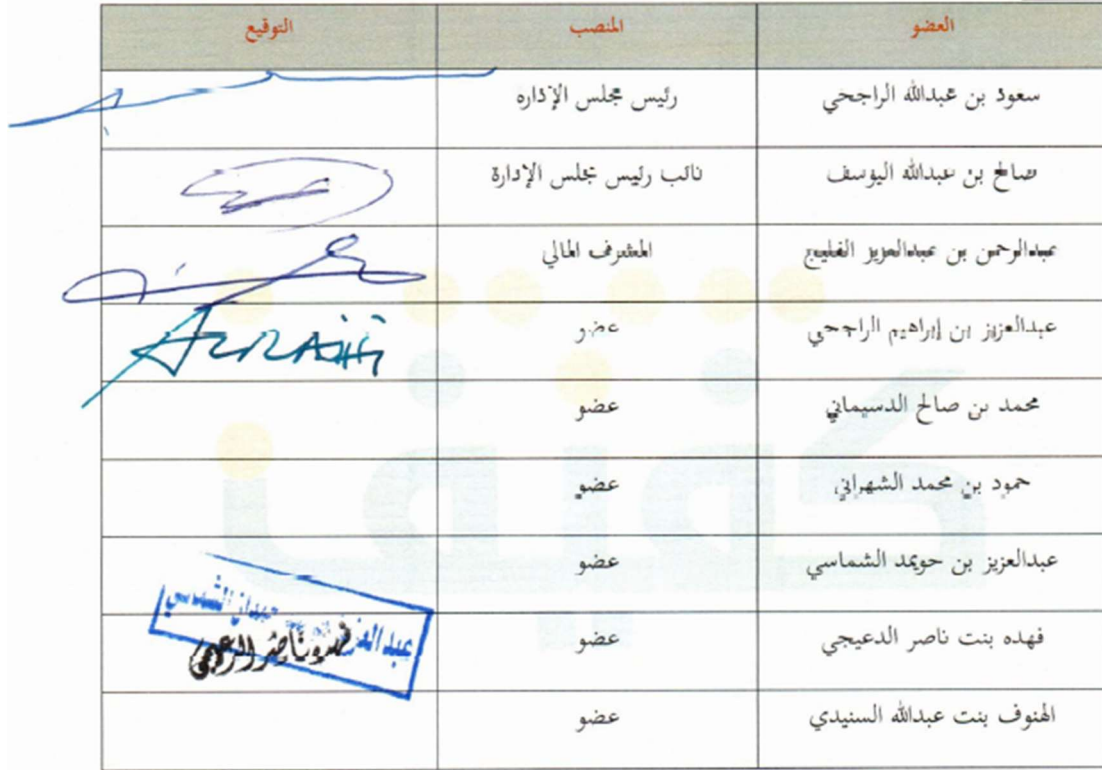 العضو المنصب التوقيع
سعود بن عبدالله الراجحي رئيس مجلس الإدارة
صالح بن عبدالله اليوسف نائب رئيس مجلس الإدارة
عبدالرحمن بن عبدالعزيز الفليج المشرف المالي
عبدالعزيز بن إبراهيم الراجحي عضو ALRAJHI
محمد بن صالح الدسيماني عضو
حمود بن محمد الشهراني عضو
عبدالعزيز بن حويمد الشماسي عضو
فهده بنت ناصر الدعيجي عضو
الهنوف بنت عبدالله السنيدي عضو
كفيفة